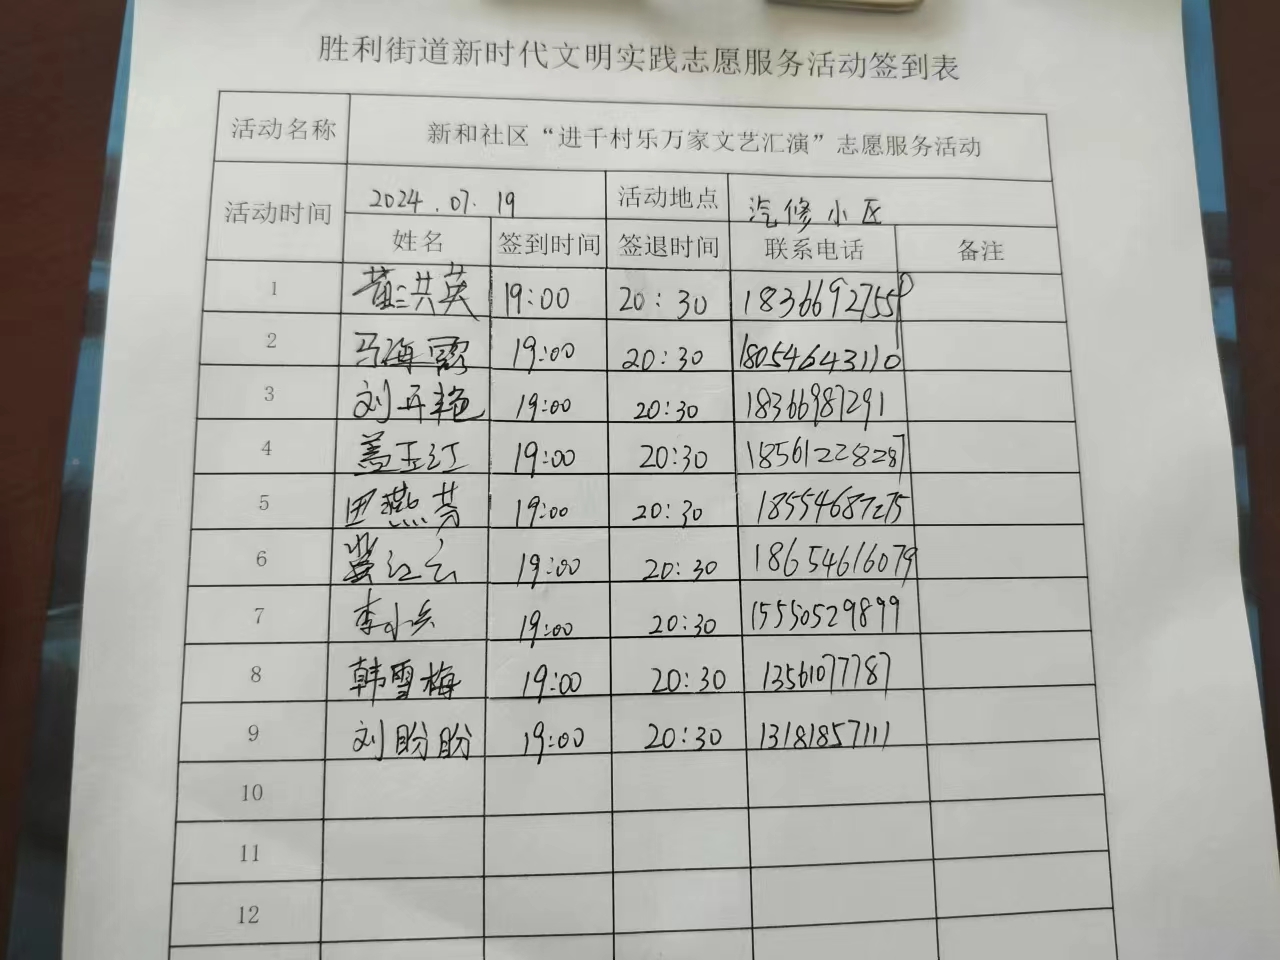 胜利街道新时代文明实践志愿服务活动签到表
活动名称 新和社区“进千村乐万家文艺汇演”志愿服务活动
活动时间 2024.07.19 活动地点 汽修小区
姓名 签到时间 签退时间 联系电话 备注
1 黄洪英 19:00 20:30 18366927559
2 马海霞 19:00 20:30 18054643110
3 刘再艳 19:00 20:30 18366987291
4 盖玉江 19:00 20:30 18561228287
5 田燕芳 19:00 20:30 18554687275
6 红云 19:00 20:30 18654616079
7 李小兵 19:00 20:30 15550529899
8 韩雪梅 19:00 20:30 13561077787
9 刘盼盼 19:00 20:30 13181857111
10
11
12